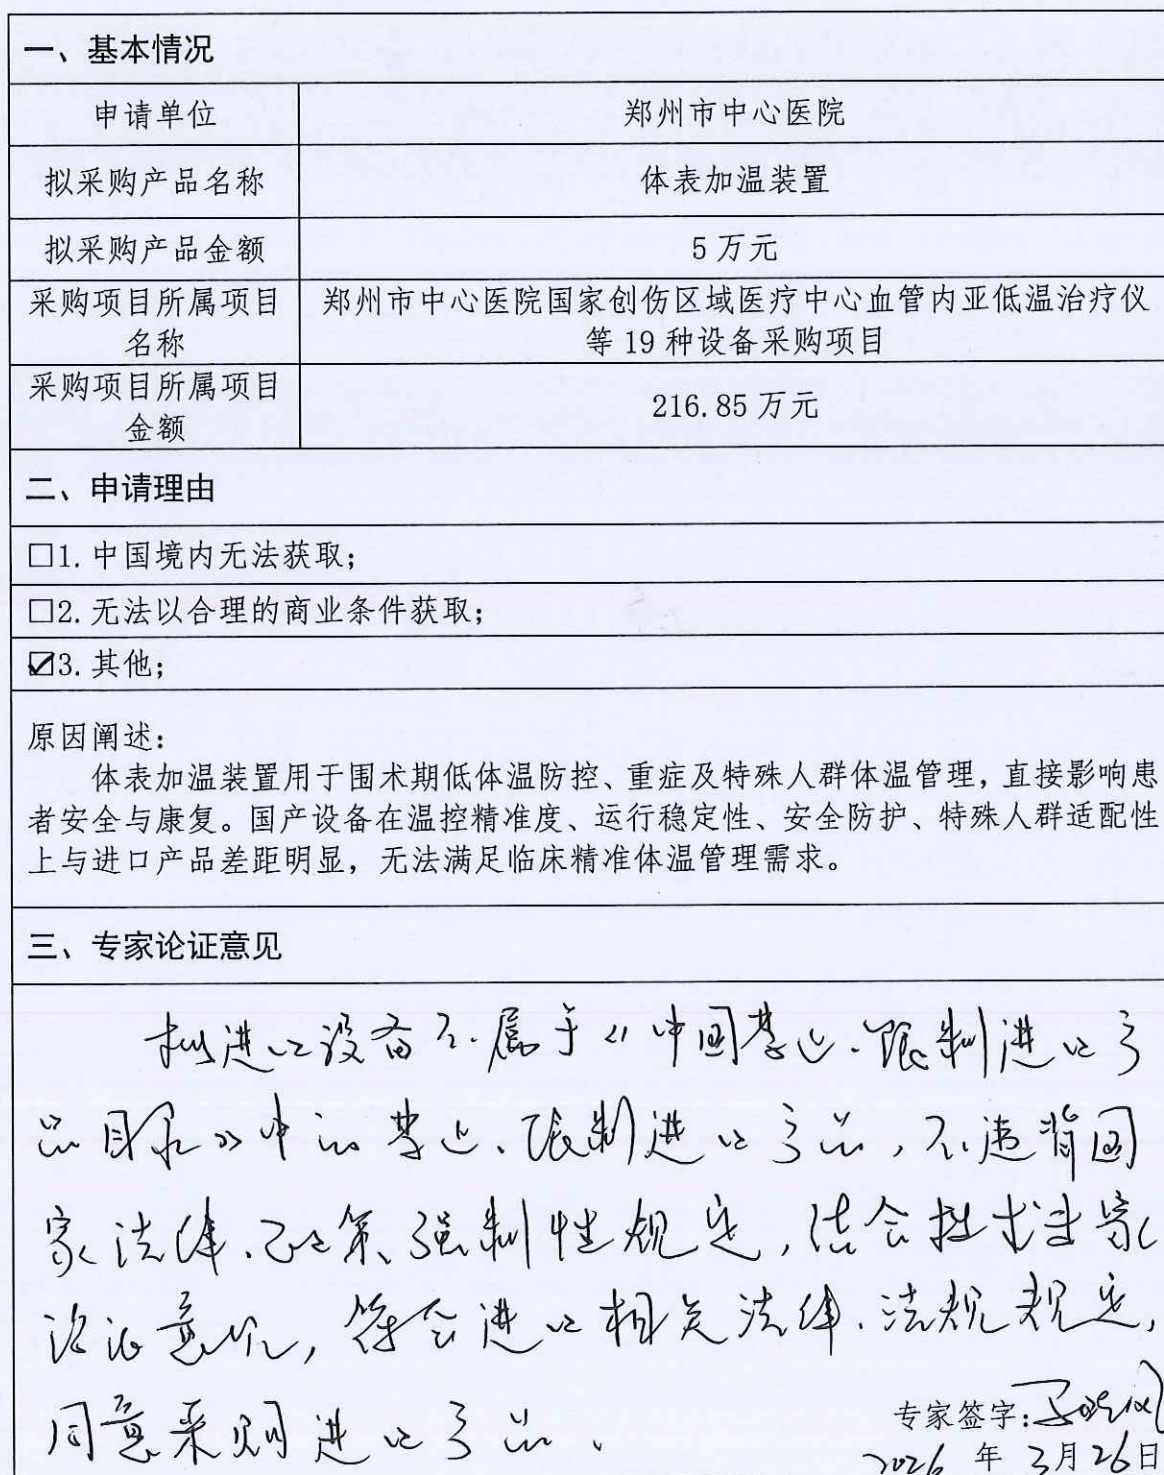 一、基本情况
申请单位 郑州市中心医院
拟采购产品名称 体表加温装置
拟采购产品金额 5万元
采购项目所属项目
名称
郑州市中心医院国家创伤区域医疗中心血管内亚低温治疗仪
等19种设备采购项目
采购项目所属项目
金额
216.85万元
二、申请理由
□1.中国境内无法获取；
□2.无法以合理的商业条件获取；
☑3.其他；
原因阐述：
体表加温装置用于围术期低体温防控、重症及特殊人群体温管理，直接影响患
者安全与康复。国产设备在温控精准度、运行稳定性、安全防护、特殊人群适配性
上与进口产品差距明显，无法满足临床精准体温管理需求。
三、专家论证意见
拟进口设备不属于《中国禁止、限制进口产
品目录》中的禁止、限制进口产品，不违背国
家法律、政策、强制性规定，结合技术专家
论证意见，符合进口相关法律、法规规定，
同意采购进口产品、
专家签字：
2026 年 3月26日